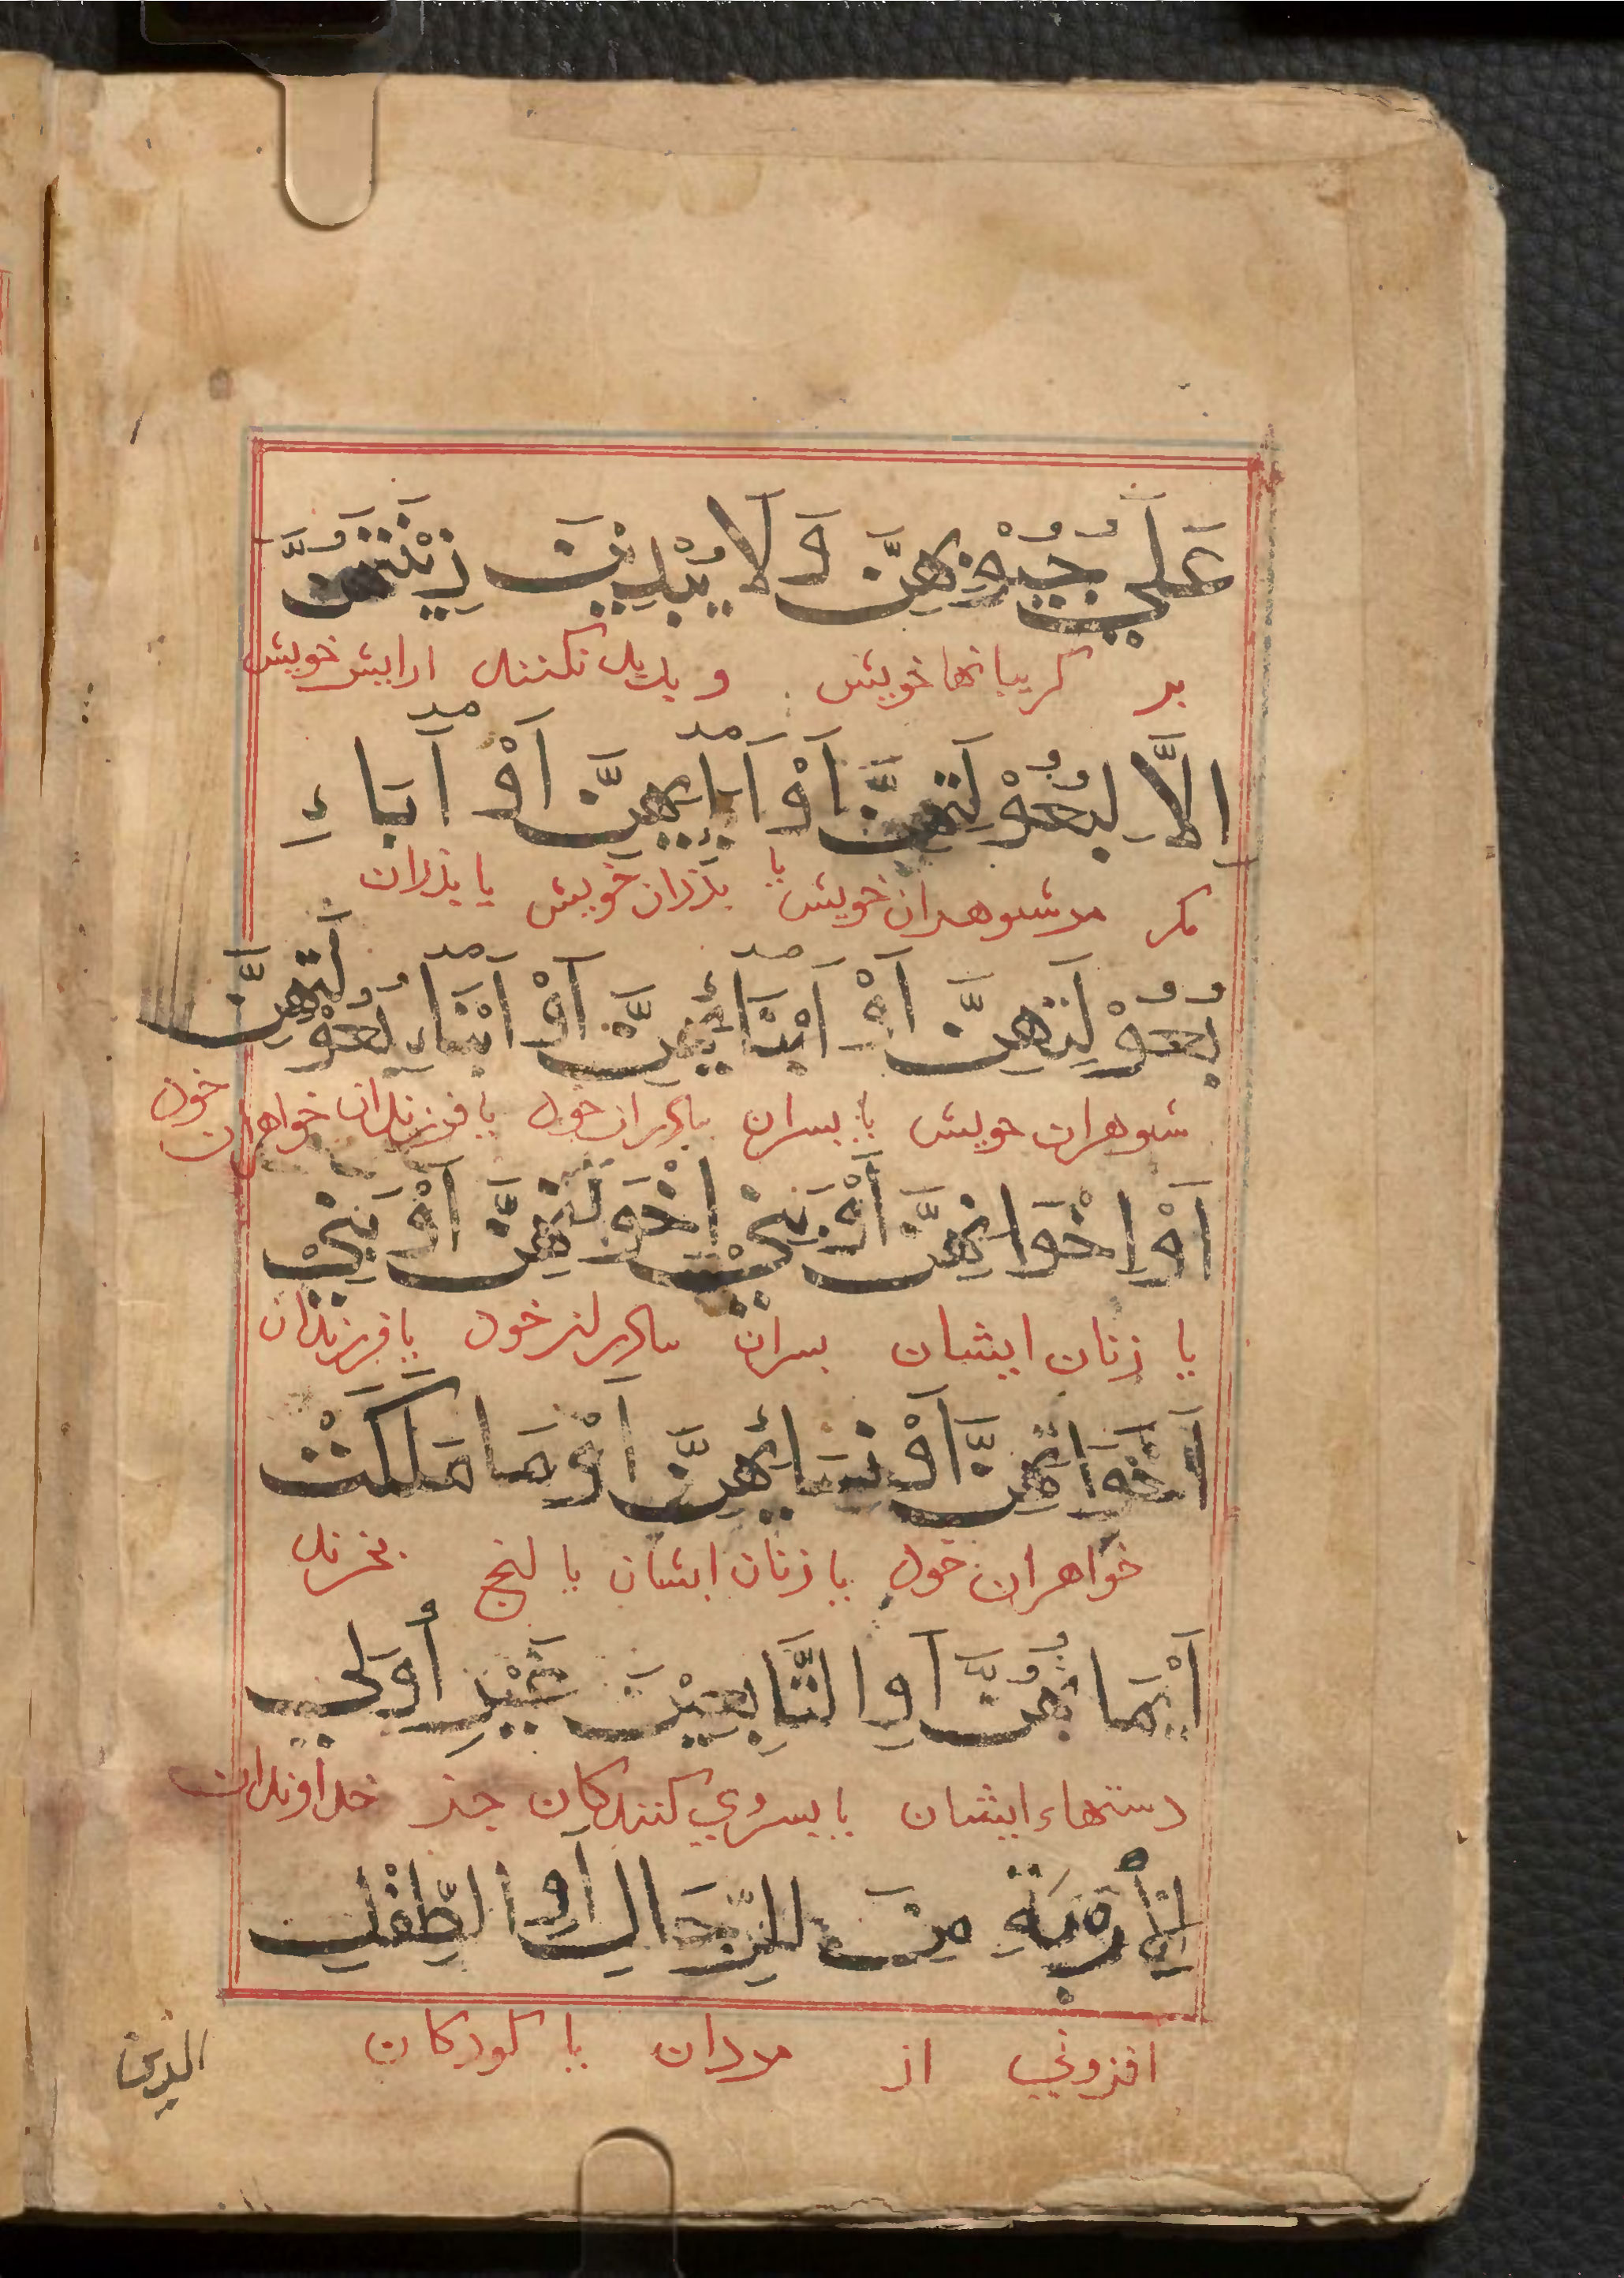 عَلَي جُيُوْبِهِنَّ وَلَا يُبْدِيْنَ زِيْنَتَهُنَّ
بر كريبانها خويش و بديد نكنند ارايش خويش
اِلَّا لِبُعُوْلَتِهِنَّ اَوْ اٰبَائِهِنَّ اَوْ اٰبَاءِ
مكر مر شوهران خويش يا بذران خويش يا بذران
بُعُوْلَتِهِنَّ اَوْ اَبْنَائِهِنَّ اَوْ اَبْنَاءِ بُعُوْلَتِهِنَّ
شوهران خويش يا بسران خود يا فرزندان خواهران خود
اَوْ اِخْوَانِهِنَّ اَوْ بَنِيْ اِخْوَنِهِنَّ اَوْ بَنِيْ
يا زنان ايشان بسران خود يا فرزندان
اَخَوَاتِهِنَّ اَوْ نِسَائِهِنَّ اَوْ مَا مَلَكَتْ
خواهران خود يا زنان ايشان يا انج بخرند
اَيْمَانُهُنَّ اَوِ التَّابِعِيْنَ غَيْرِ اُولِي
دستهاء ايشان يا بسروي كنندكان جز خداوندان
الْاُرْبَةِ مِنَ الرِّجَالِ اَوِ الطِّفْلِ
افزوني از مردان يا كودكان
الذين